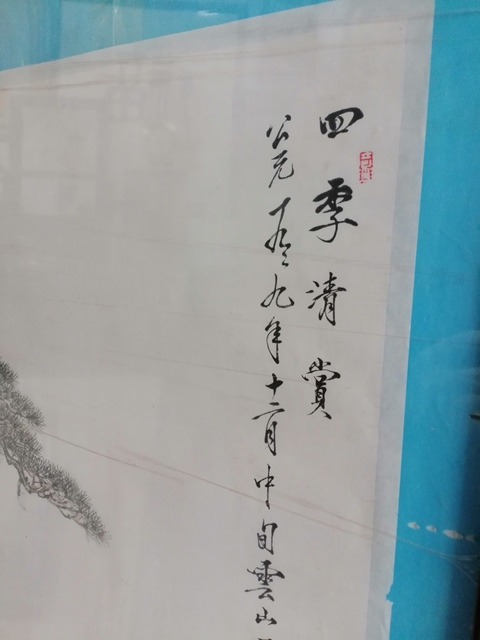 四季清賞
公元九年十二月中旬雲山